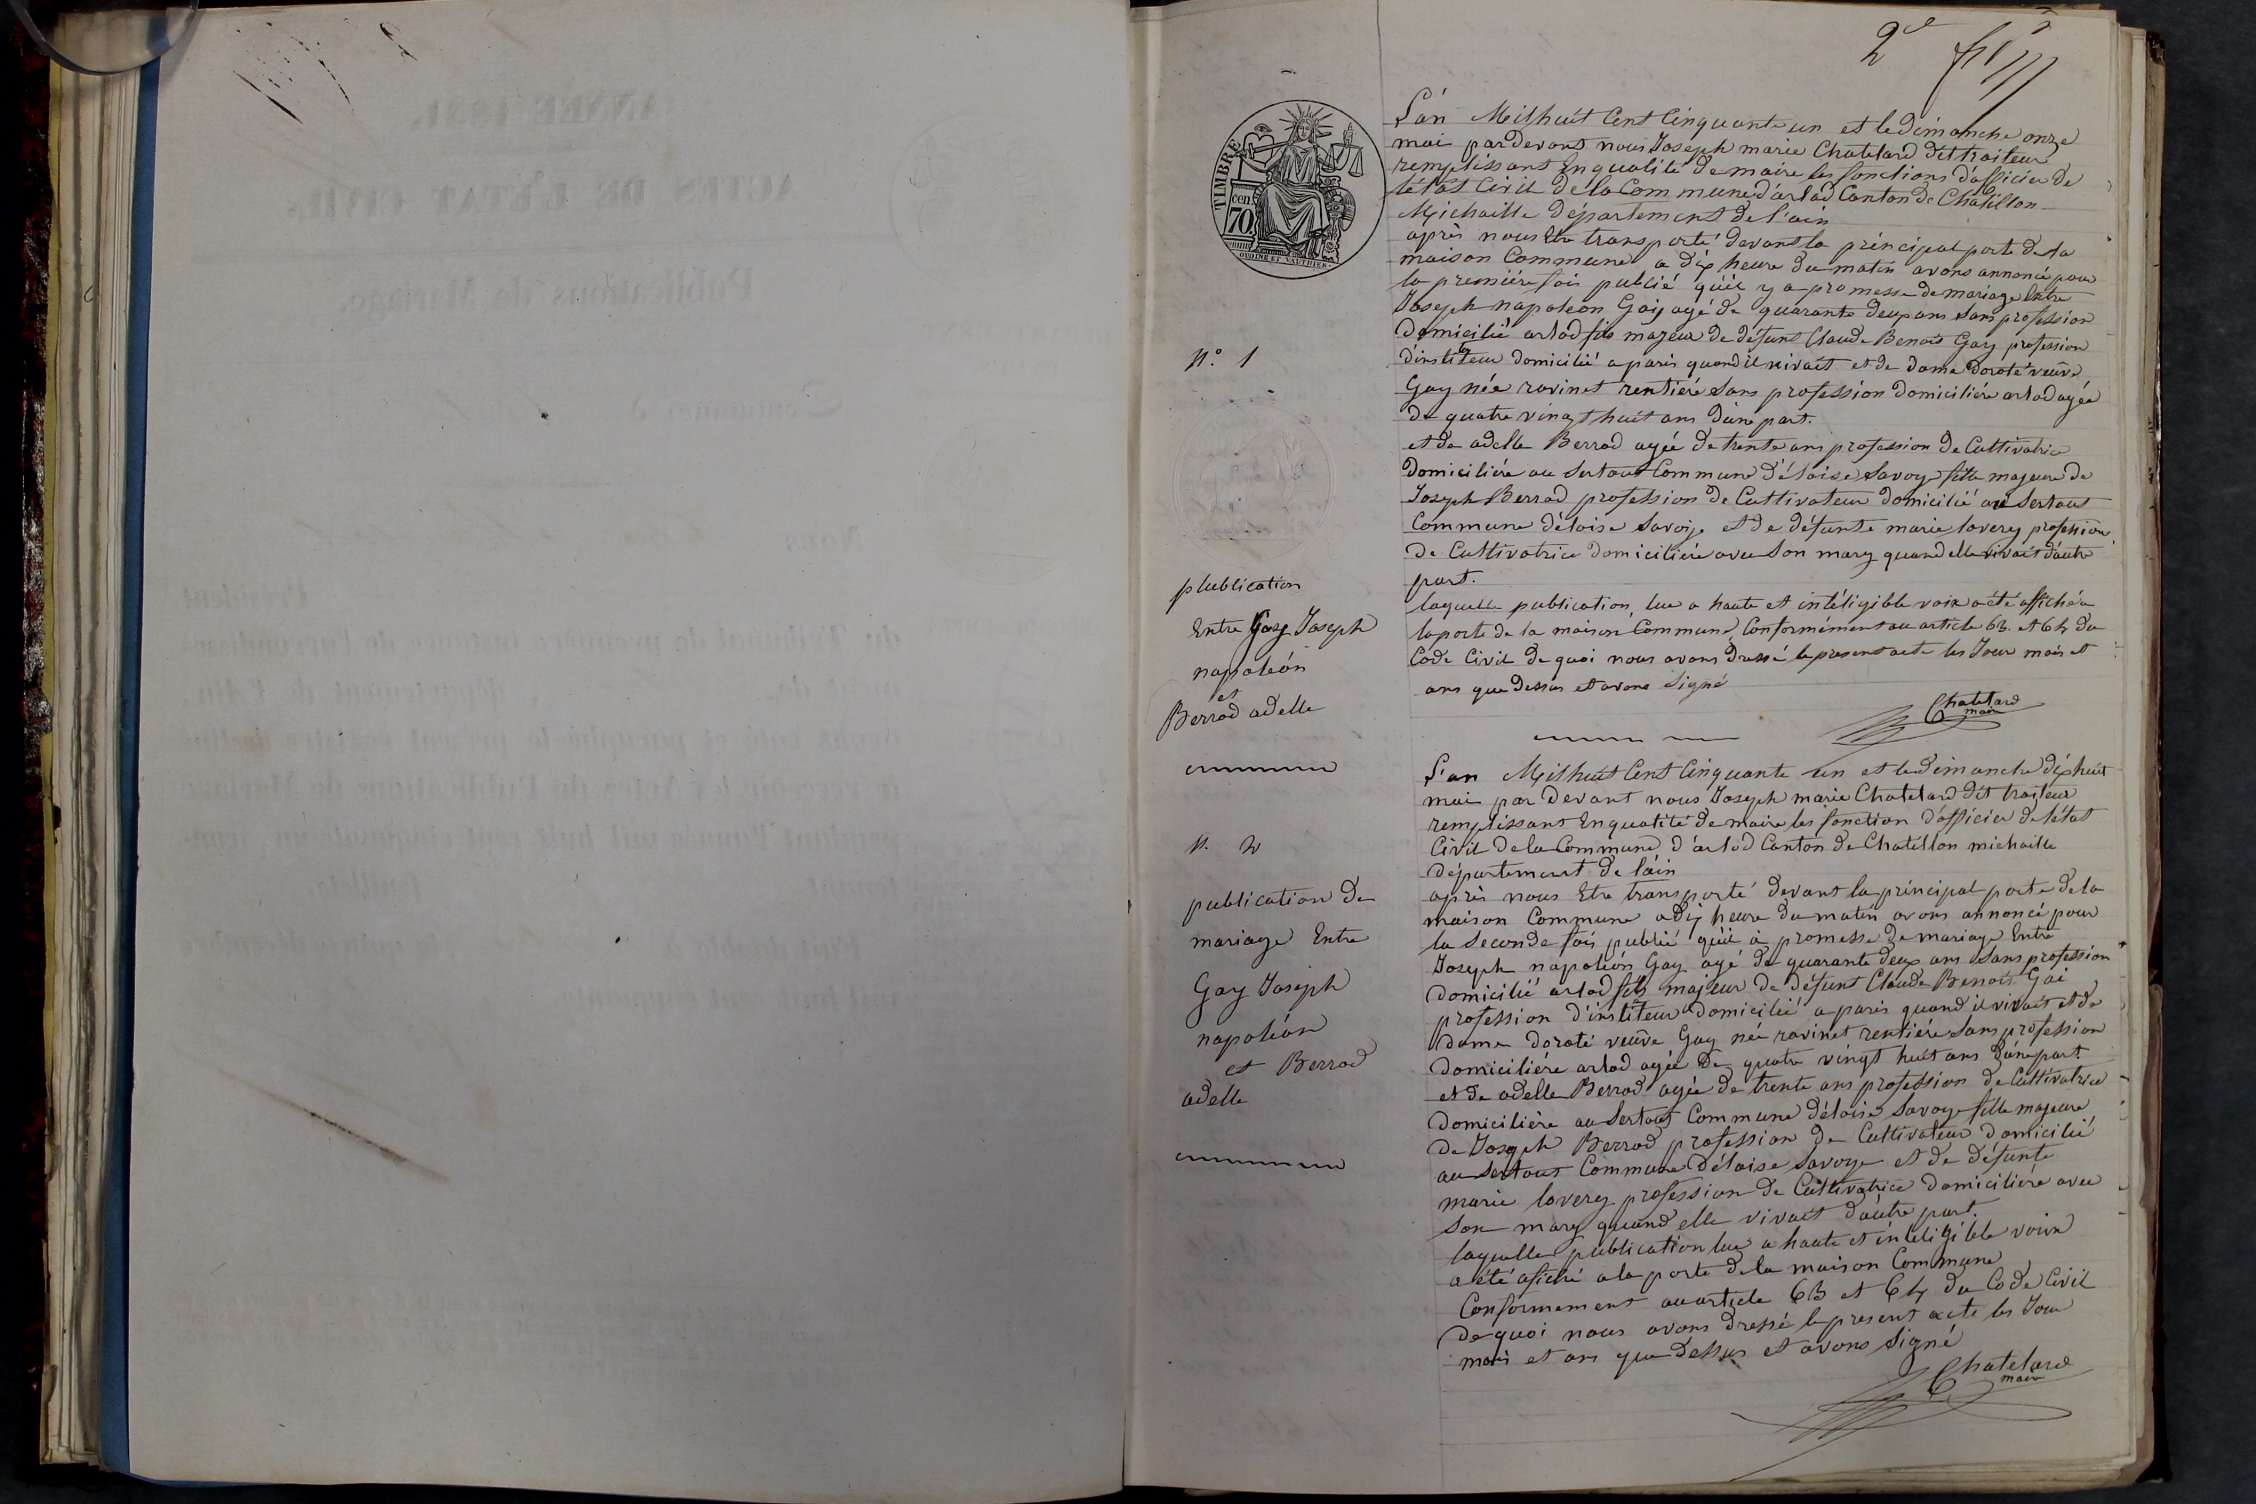 2e
TIMBRE
cen.
70
OUDINÉ ET VAUTHIER
L'an Milhuit Cent Cinquante un et le dimanche onze
mai pardevant nous Joseph marie Chatelard dit traiteur
remplissant Enqualité de maire les fonctions d'officier de
létat Civil de la Commune d'arlod Canton de Chatillon
Michaille Département de l'ain
après nous Etre transporté devant la principal porte de la
maison Commune a dix heure du matin avons annoncé pour
la premiére fois publié qu'il y a promesse de mariage Entre
Joseph napoleon Gay agé de quarante deux ans sans profession
Domicilié arlod fils majeur de défunt Claude Benoit Gay profession
d'institeur domicilié a paris quand il vivait et de dame doroté veuve
Gay née ravinet rentiére sans profession domiciliére arlod agée
de quatre vingt huit ans d'une part.
et de adelle Berrod agée de trente ans profession de Cultivatrice
Domiciliére au Sertout Commune d'éloise Savoye fille majeure de
Joseph Berrod profession de Cultivateur domicilié au Sertout
Commune d'éloise Savoye et de défunte marie lavery profession
de Cultivatrice domiciliére avec son mary quand elle vivait d'autre
part.
laquelle publication lue a haute et inteligible voix a été affiché a
la porte de la maison Commune Conformément au article 63. et 64 du
Code Civil de quoi nous avons dressé le present acte les Jour mois et
ans que dessus et avons signé
Chatelard
maire
N.o 1
plublication
Entre Gay Joseph
napoléon
et
Berrod adelle
L'an Milhuit Cent Cinquante un et le dimanche dixhuit
mai par devant nous Joseph marie Chatelard dit traiteur
remplissant Enqualité de maire les fonction d'officier de l'état
Civil de la Commune d'arlod Canton de Chatillon michaille
département de l'ain
après nous Etre transporté devant la principal porte de la
maison Commune a dix heure du matin avons annoncé pour
la seconde fois publié qu'il à promesse de mariage Entre
Joseph napoléon Gay agé de quarante deux ans sans profession
domicilié arlod fils majeur de défunt Claude Benoit Gai
profession d'institeur domicilié a paris quand il vivait et de
dame doroté veuve Gay née ravinet rentiére sans profession
domiciliére arlod agée de quatre vingt huit ans d'une part.
et de adelle Berrod agée de trente ans profession de Cultivatrice
domiciliére au Sertout Commune d'éloise Savoye fille majeure
de Joseph Berrod profession de Cultivateur domicilié
au Sertout Commune d'éloise Savoye et de défunte
marie lavery profession de Cultivatrice domiciliére avec
son mary quand elle vivait d'autre part.
laquelle publication lue a haute et inteligible voix
a été afiché a la porte de la maison Commune
Conformement au article 63 et 64 du Code Civil
de quoi nous avons dressé le present acte les Jour
mois et ans que dessus et avons signé
Chatelard
maire
N. 2
publication de
mariage Entre
Gay Joseph
napoléon
et Berrod
adelle